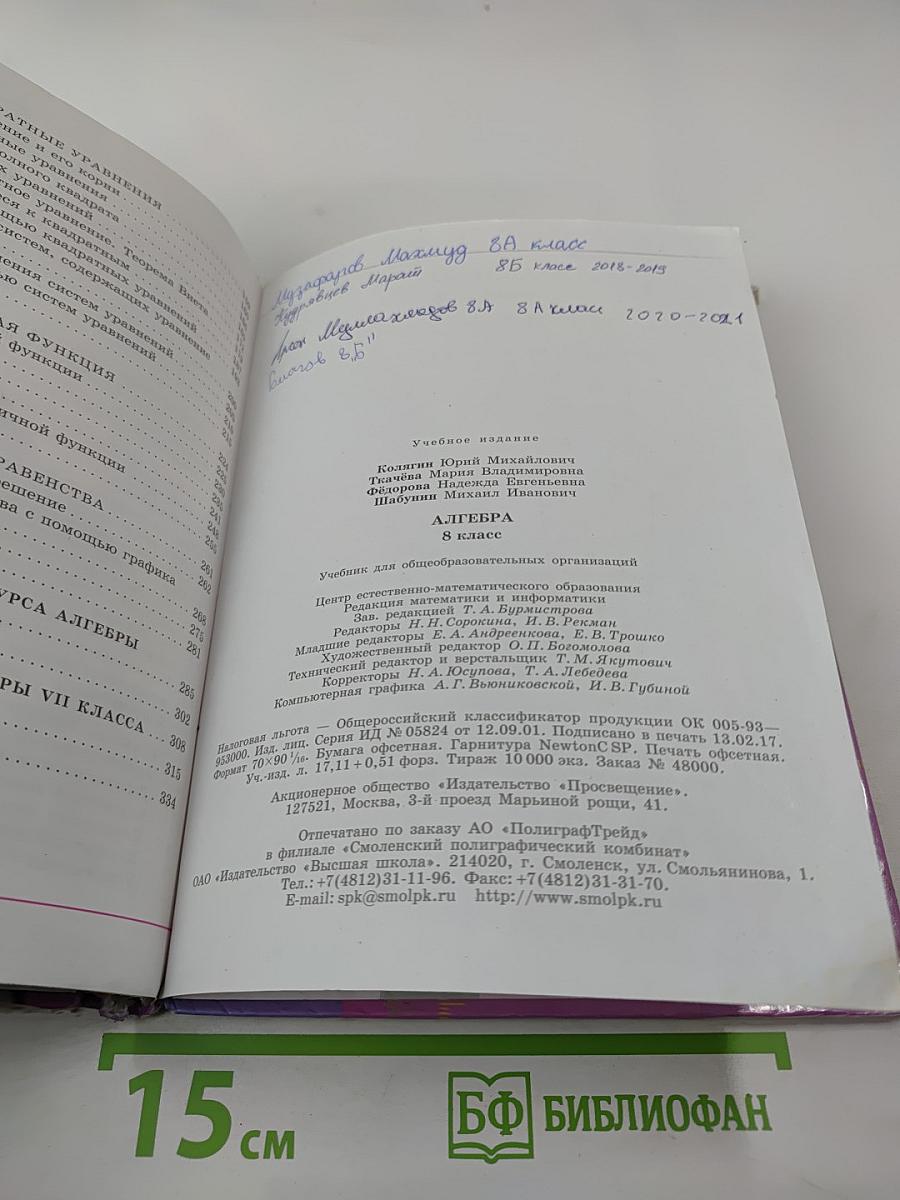 РАТНЫЕ УРАВНЕНИЯ
ение и его корни
ные уравнения
олного квадрата
х уравнений
тное уравнение. Теорема Виета
еся к квадратным
щью квадратных уравнений
систем, содержащих уравнение
ения систем уравнений
ью систем уравнений
АЯ ФУНКЦИЯ
й функции
ичной функции
РАВЕНСТВА
решение
ва с помощью графика
261
262
268
275
281
УРСА АЛГЕБРЫ
285
302
РЫ VII КЛАССА
308
315
334
Музафаров Махмуд 8А класс
Кудрявцев Марат 8Б класс 2018-2019
8А 8А класс 2020-2021
8„Б"
Учебное издание
Колягин Юрий Михайлович
Ткачёва Мария Владимировна
Фёдорова Надежда Евгеньевна
Шабунин Михаил Иванович
АЛГЕБРА
8 класс
Учебник для общеобразовательных организаций
Центр естественно-математического образования
Редакция математики и информатики
Зав. редакцией Т. А. Бурмистрова
Редакторы Н. Н. Сорокина, И. В. Рекман
Младшие редакторы Е. А. Андреенкова, Е. В. Трошко
Художественный редактор О. П. Богомолова
Технический редактор и верстальщик Т. М. Якутович
Корректоры Н. А. Юсупова, Т. А. Лебедева
Компьютерная графика А. Г. Вьюниковской, И. В. Губиной
Налоговая льгота — Общероссийский классификатор продукции ОК 005-93—
953000. Изд. лиц. Серия ИД № 05824 от 12.09.01. Подписано в печать 13.02.17.
Формат 70×90 1/16. Бумага офсетная. Гарнитура NewtonCSP. Печать офсетная.
Уч.-изд. л. 17,11 + 0,51 форз. Тираж 10 000 экз. Заказ № 48000.
Акционерное общество «Издательство «Просвещение».
127521, Москва, 3-й проезд Марьиной рощи, 41.
Отпечатано по заказу АО «ПолиграфТрейд»
в филиале «Смоленский полиграфический комбинат»
ОАО «Издательство «Высшая школа». 214020, г. Смоленск, ул. Смольянинова, 1.
Тел.: +7(4812)31-11-96. Факс: +7(4812)31-31-70.
E-mail: spk@smolpk.ru http://www.smolpk.ru
15 см
БФ БИБЛИОФАН